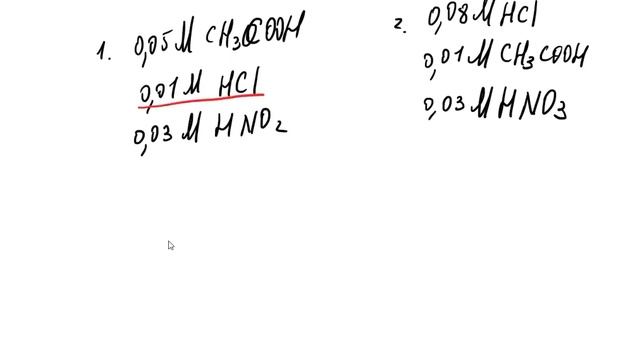 1. 0,05 M CH3COOH
0,01 M HCl
0,03 M HNO2
2. 0,08 M HCl
0,01 M CH3COOH
0,03 M HNO3